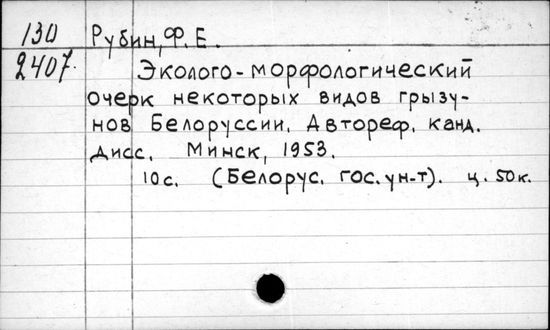 130 Рубин, Ф. Е.
2407. Эколого-морфологический
очерк некоторых видов грызу-
нов Белоруссии. Автореф. канд.
дисс. Минск, 1953.
10 с. (Белорус. гос. ун-т). ц. 50 к.